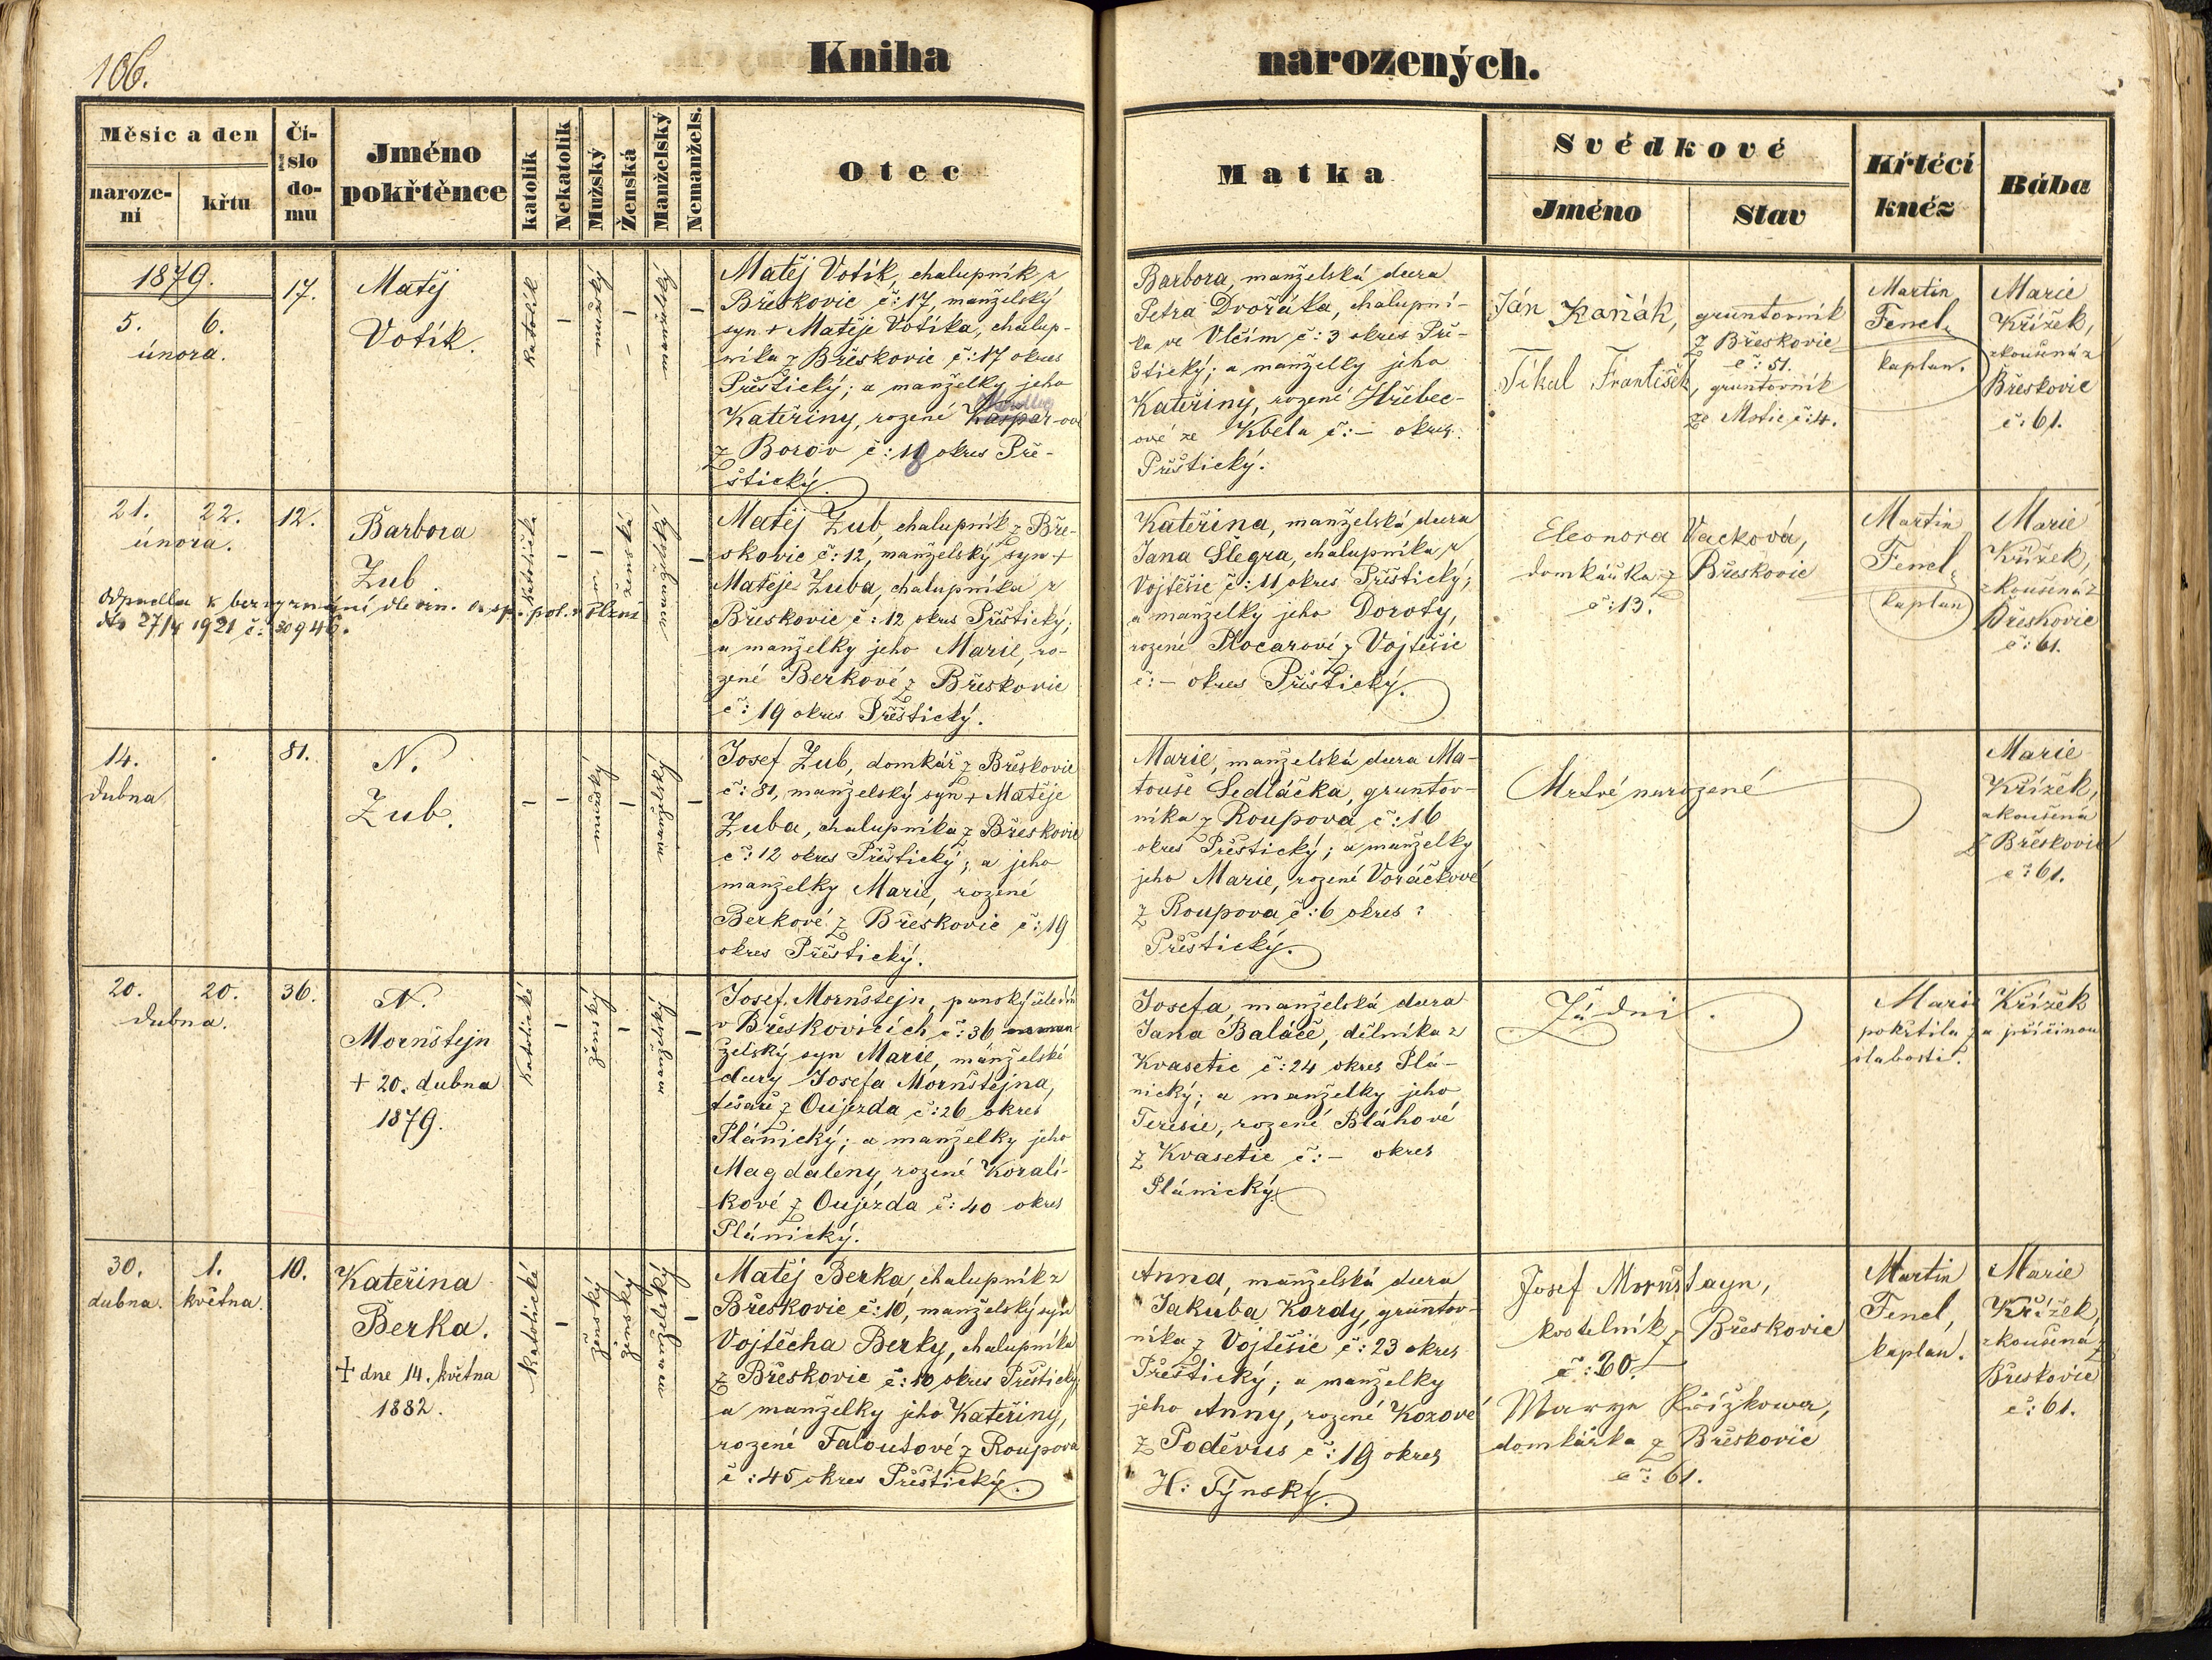 106.
Kniha narozených.
Měsíc a den
naroze-
ní
křtu
Čí-
slo
do-
mu
Jméno
pokřtěnce
katolík
Nekatolík
Mužský
Ženská
Manželský
Nemanžels.
Otec
Matka
Svědkové
Jméno
Stav
Křtěcí
kněz
Bába
1879.
5. 6.
února.
17.
Matěj
Votík.
katolík
–
mužský
–
manželský
–
Matěj Votík, chalupník z
Břeskovic č: 17, manželský
syn + Matěje Votíka, chalup-
níka z Břeskovic č: 17 okres
Přeštický; a manželky jeho
Kateřiny, rozené Kašpar-ové
z Borov č: 18 okres Pře-
štický.
Barbora, manželská dcera
Petra Dvořáka, chalupní-
ka ve Vlčím č: 3 okres Pře-
štický; a manželky jeho
Kateřiny, rozené Hřebec-
ové ze Kbela č: – okres
Přeštický.
Ján Kaňák,
gruntovník
z Břeskovic
č: 51.
Tikal František,
gruntovník
ze Mstic č: 4.
Martin
Fenel,
kaplan.
Marie
Křížek,
zkoušená z
Břeskovic
č: 61.
21. 22.
února.
12.
Barbora
Zub
katolička
–
–
ženská
manželská
–
Odpadla k bezvyznání dle ozn. o. sp. pol. v Plzni
dto 27/4 1921 č: 30946.
Matěj Zub, chalupník z Bře-
skovic č: 12, manželský syn +
Matěje Zuba, chalupníka z
Břeskovic č: 12 okres Přeštický;
a manželky jeho Marie, ro-
zené Berkové z Břeskovic
č: 19 okres Přeštický.
Kateřina, manželská dcera
Jana Šlegra, chalupníka z
Vojtěšic č: 11 okres Přeštický;
a manželky jeho Doroty,
rozené Plocarové z Vojtěšic
č: – okres Přeštický.
Eleonora Vacková,
domkářka z Břeskovic
č: 13.
Martin
Fenel,
kaplan
Marie
Křížek,
zkoušená z
Břeskovic
č: 61.
14.
dubna
81.
N.
Zub.
–
–
mužský
–
manželský
–
Josef Zub, domkář z Břeskovic
č: 81, manželský syn + Matěje
Zuba, chalupníka z Břeskovic
č: 12 okres Přeštický; a jeho
manželky Marie, rozené
Berkové z Břeskovic č: 19
okres Přeštický.
Marie, manželská dcera Ma-
touše Sedláčka, gruntov-
níka z Roupova č: 16
okres Přeštický; a manželky
jeho Marie, rozené Voráčkové
z Roupova č: 6 okres:
Přeštický.
Mrtvě narozené
Marie
Křížek,
zkoušená
z Břeskovic
č: 61.
20. 20.
dubna.
36.
N.
Mornštejn
+ 20. dubna
1879.
katolické
–
ženský
–
manželský
–
Josef Mornštejn, panský čeledín
v Břeskovicích č: 36
želský syn Marie, manželské
dcery Josefa Mornštejna,
tesaře z Oujezda č: 26 okres
Plánický; a manželky jeho
Magdaleny, rozené Koralí-
kové z Oujezda č: 40 okres
Plánický.
Josefa manželská dcera
Jana Baláče, dělníka z
Kvasetic č: 24 okres Plá-
nický; a manželky jeho
Teresie, rozené Bláhové
z Kvasetic č: – okres
Plánický.
Žádní.
Marie Křížek
pokřtila z a příčinou
slabosti.
30. 1.
dubna. května.
10.
Kateřina
Berka.
+ dne 14. května
1882.
katolické
–
ženský
ženský
manželský
–
Matěj Berka, chalupník z
Břeskovic č: 10, manželský syn
Vojtěcha Berky, chalupníka
z Břeskovic č: 10 okres Přeštický
a manželky jeho Kateřiny,
rozené Faloutové z Roupova
č: 45 okres Přeštický.
Anna, manželská dcera
Jakuba Kordy, gruntov-
níka z Vojtěšic č: 23 okres
Přeštický; a manželky
jeho Anny, rozené Kozové
z Poděvus č: 19 okres
H: Týnský.
Josef Mornštayn,
kostelník z Břeskovic
č: 20.
Marye Křížkowa,
domkářka z Břeskovic
č: 61.
Martin
Fenel,
kaplan.
Marie
Křížek,
zkoušená z
Břeskovic
č: 61.